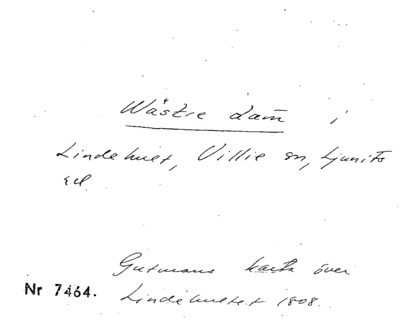 Wästre dam̄ i
Lindehult, Villie sn, Ljunits
hd.
Gutmans karta över
Nr 7464.
Lindehultet 1808.